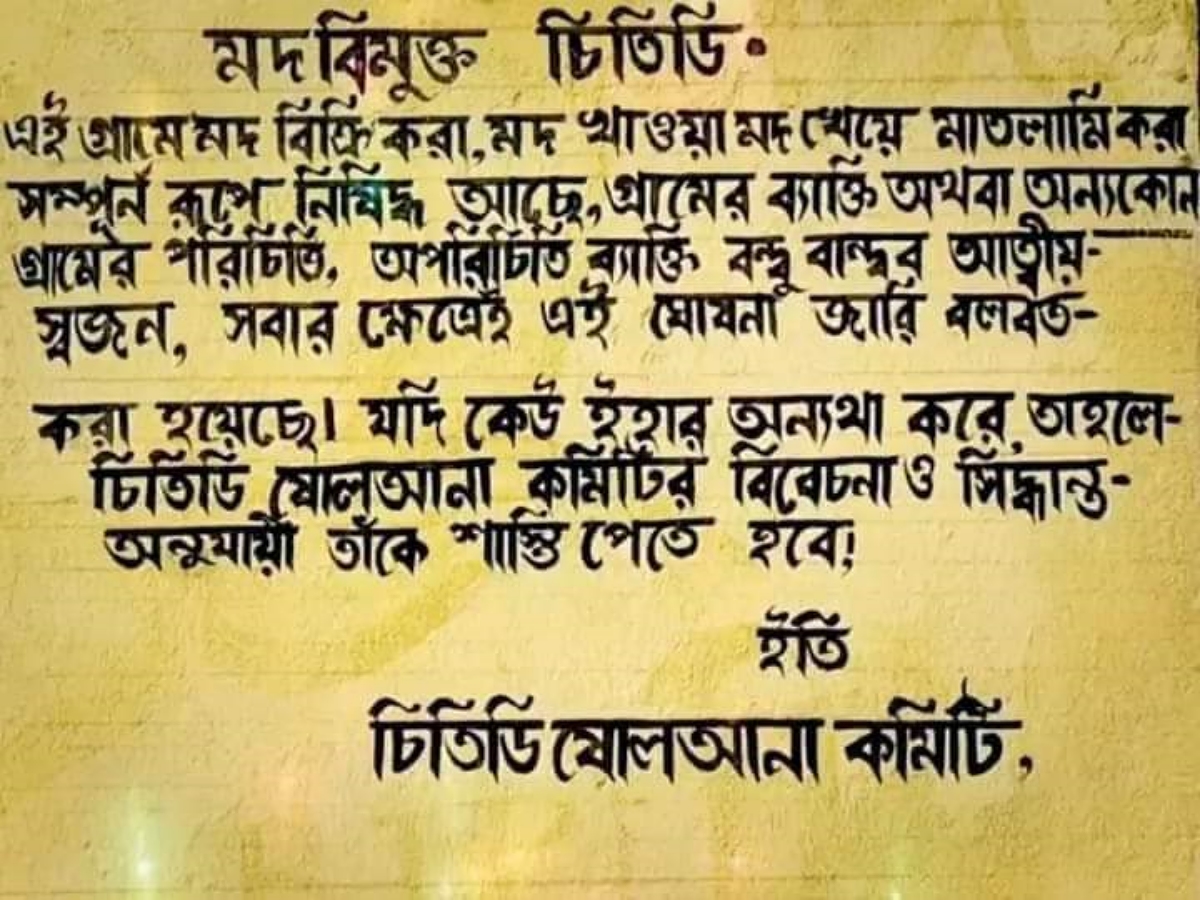 মদ বিমুক্ত চিতিডি.
এই গ্রামে মদ বিক্রি করা, মদ খাওয়া মদ খেয়ে মাতলামি করা
সম্পূর্ন রূপে নিষিদ্ধ আছে, গ্রামের ব্যাক্তি অথবা অন্যকোন
গ্রামের পরিচিতি, অপরিচিতি ব্যাক্তি বন্ধু বান্ধব আত্বীয়-
স্বজন, সবার ক্ষেত্রেই এই ঘোষনা জারি বলবত-
করা হয়েছে। যদি কেউ ইহার অন্যথা করে, তাহলে-
চিতিডি ষোলআনা কমিটির বিবেচনা ও সিদ্ধান্ত-
অনুযায়ী তাঁকে শাস্তি পেতে হবে!
ইতি
চিতিডি ষোলআনা কমিটি,